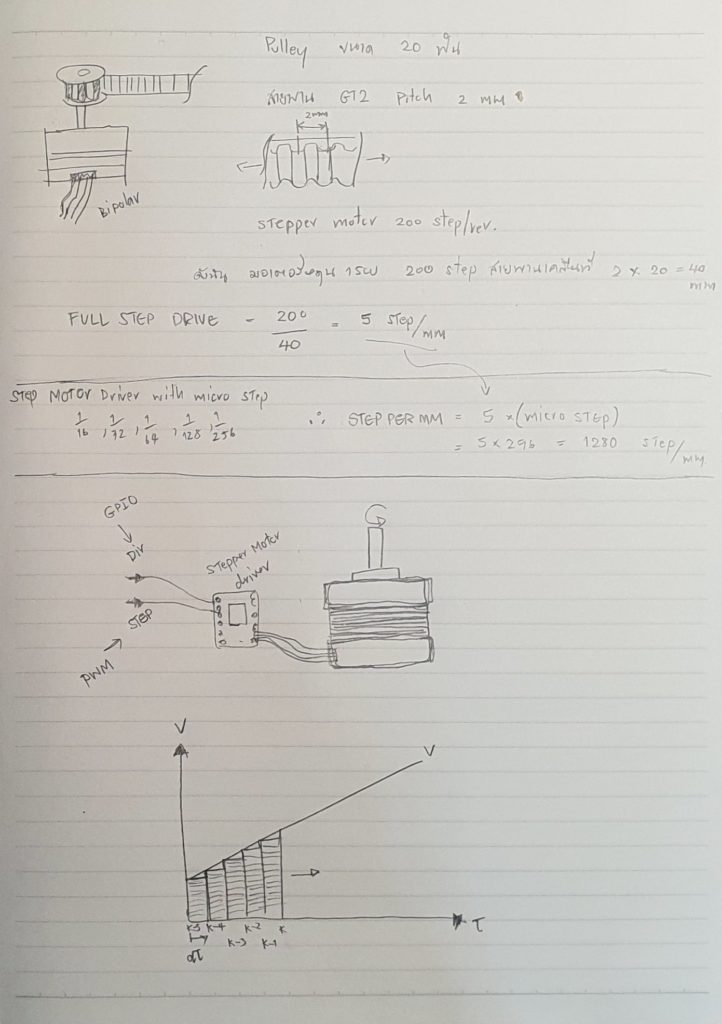 Pulley ขนาด 20 ฟัน
สายพาน GT2 Pitch 2 mm
2mm
Bipolar
Stepper motor 200 step/rev.
ดังนั้น มอเตอร์หมุน 1รอบ 200 step สายพานเคลื่อนที่ 2 x 20 = 40 mm
FULL STEP DRIVE - 200/40 = 5 step/mm
STEP MOTOR Driver with micro step
1/16, 1/32, 1/64, 1/128, 1/256
∴ STEP PER MM = 5 x (micro STEP)
= 5 x 256 = 1280 step/mm
GPIO
Dir
Stepper Motor driver
STEP
PWM
V
V
K-5 K-4 K-3 K-2 K-1 K
T
dT